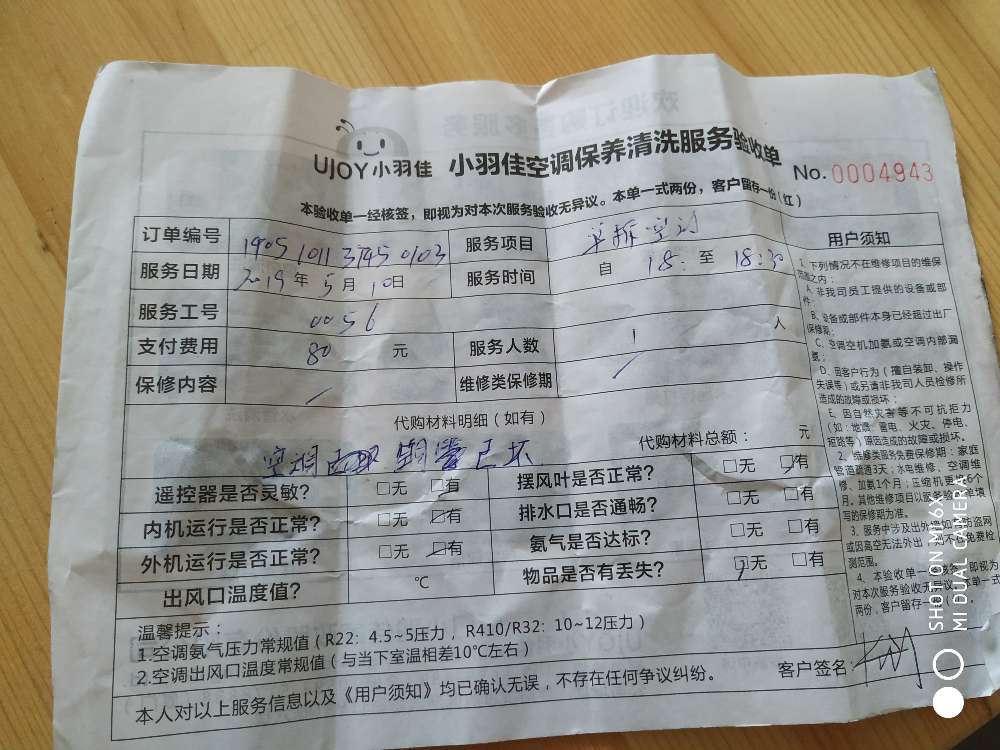 UJOY小羽佳 小羽佳空调保养清洗服务验收单 No.0004943
本验收单一经核签，即视为对本次服务验收无异议。本单一式两份，客户留存一份（红）
订单编号 1905 1011 3745 0103 服务项目 单拆空调
服务日期 2019年5月10日 服务时间 自 18: 至 18:30
服务工号 0056
支付费用 80 元 服务人数 1 人
保修内容 / 维修类保修期 /
代购材料明细（如有）
空调 铜管已坏 代购材料总额： 元
遥控器是否灵敏？ □无 □有 摆风叶是否正常？ □无 □有
内机运行是否正常？ □无 □有 排水口是否通畅？ □无 □有
外机运行是否正常？ □无 □有 氨气是否达标？ □无 □有
出风口温度值？ ℃ 物品是否有丢失？ □无 □有
温馨提示：
1.空调氨气压力常规值（R22：4.5~5压力，R410/R32：10~12压力）
2.空调出风口温度常规值（与当下室温相差10℃左右）
本人对以上服务信息以及《用户须知》均已确认无误，不存在任何争议纠纷。
客户签名：
用户须知
1、下列情况不在维修项目的维保
范围之内：
A、非我司员工提供的设备或部
件；
B、设备或部件本身已经超过出厂
保修期；
C、空调空机加氨或空调内部漏
氨；
D、因客户行为（擅自装卸、操作
失误等）或另请非我司人员检修所
造成的故障或损坏；
E、因自然灾害等不可抗拒力
（如：地震、雷电、火灾、停电、
短路等）原因造成的故障或损坏。
2、维修类服务免费保修期：家庭
管道疏通3天；水电维修、空调维
修、加氨1个月；压缩机更换6个
月。其他维修项目以服务验收单填
写的保修期为准。
3、服务中涉及出外墙 防盗网
或因高空无法外出 不可免费检
测范围。
4、本验收单一 核签，即视为
对本次服务验收无异议，本单一式
两份，客户留存一
SHOT ON MI 6X
MI DUAL CAMERA